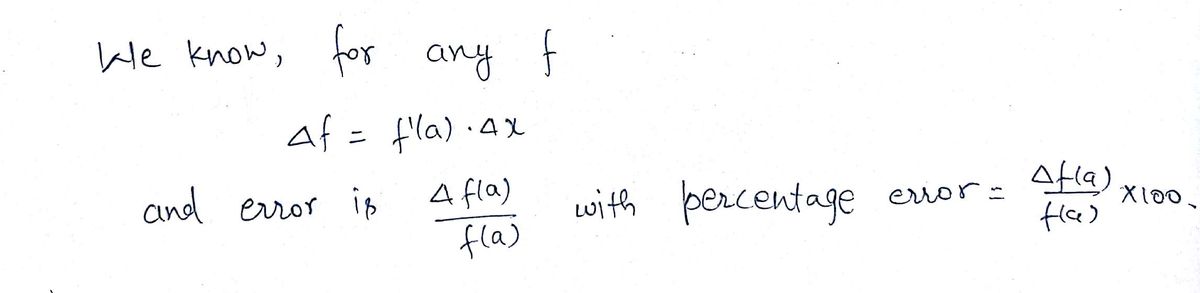 We know, for any f
Δf = f'(a) · Δx
and error is Δf(a)/f(a) with percentage error = Δf(a)/f(a) × 100.